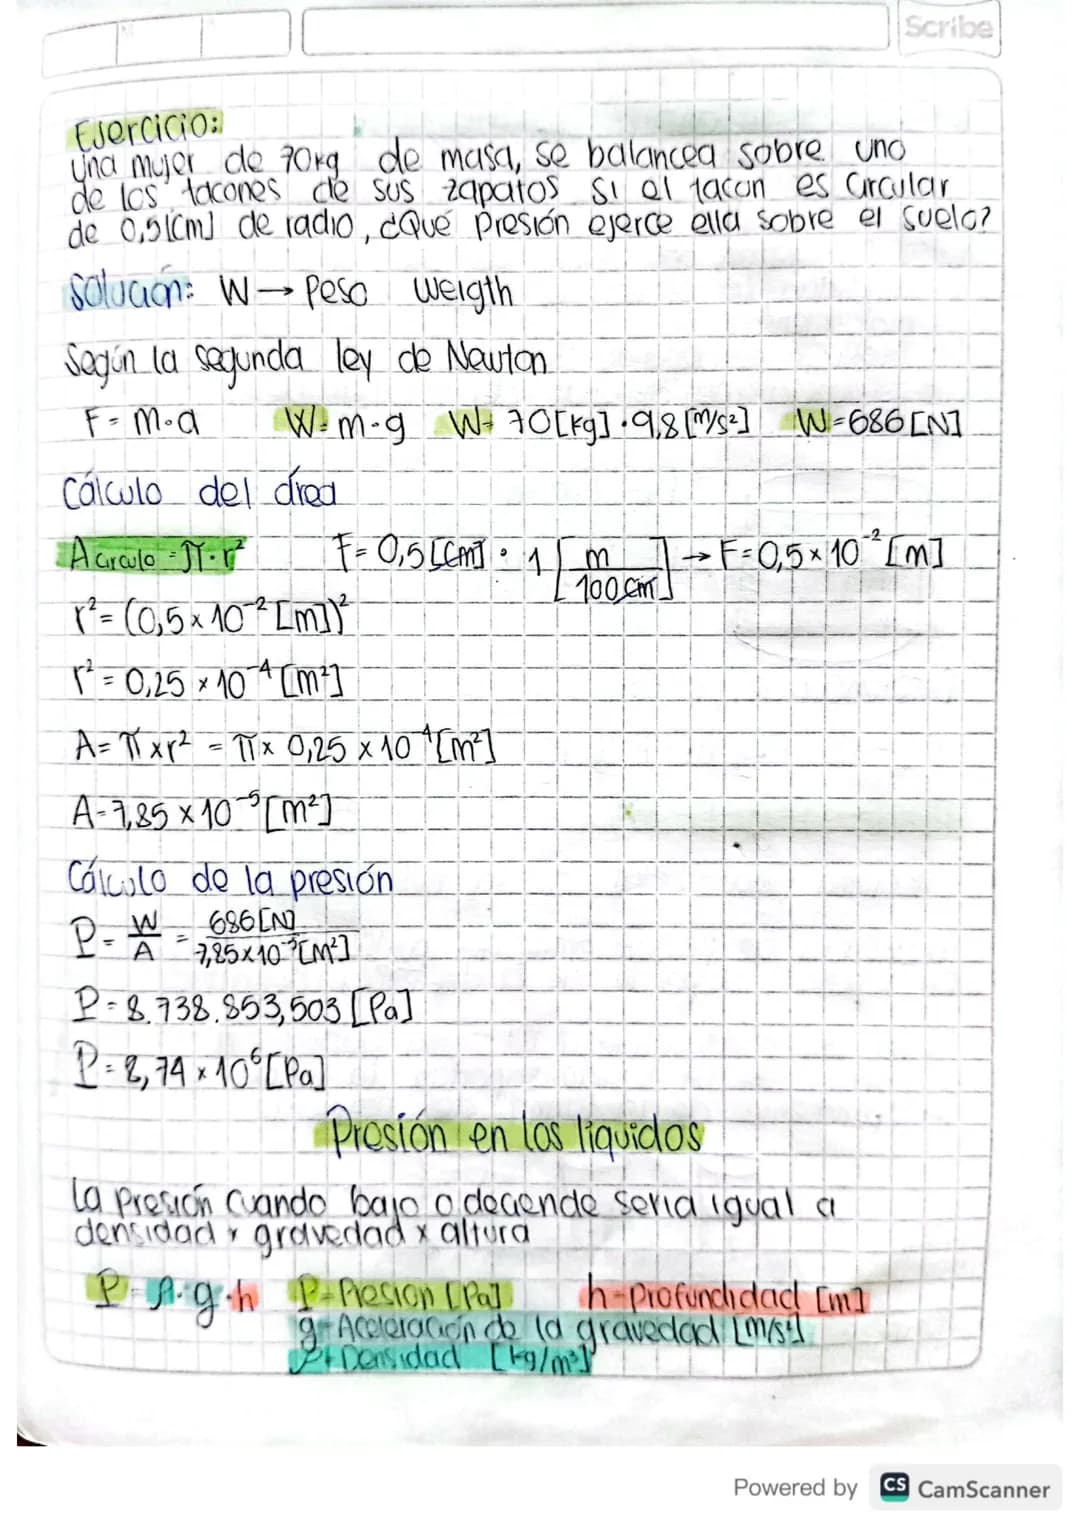 Scribe
Ejercicio:
Una mujer de 70kg de masa, se balancea sobre uno
de los tacones de sus zapatos si el tacon es circular
de 0,5[cm] de radio, ¿Qué presión ejerce ella sobre el suelo?
Solución: W → Peso weigth
Según la segunda ley de Newton
F = m·a W= m·g W= 70[kg]·9,8[m/s²] W=686[N]
Cálculo del área
Acirculo = π·r² F= 0,5[cm] · 1 [m / 100cm] → F=0,5×10⁻²[m]
r²= (0,5×10⁻²[m])²
r² = 0,25 × 10⁻⁴ [m²]
A= π x r² = π x 0,25 x 10⁻⁴[m²]
A=7,85 x 10⁻⁵[m²]
Cálculo de la presión
P = W/A = 686[N] / 7,85x10⁻⁵[m²]
P = 8.738.853,503 [Pa]
P = 8,74 x 10⁶ [Pa]
Presión en los liquidos
La Presión cuando bajo o deciende seria igual a
densidad x gravedad x altura
P = ρ·g·h P=Presion [Pa] h=profundidad [m]
g=Aceleración de la gravedad [m/s²]
ρ=Densidad [kg/m³]
Powered by CS CamScanner